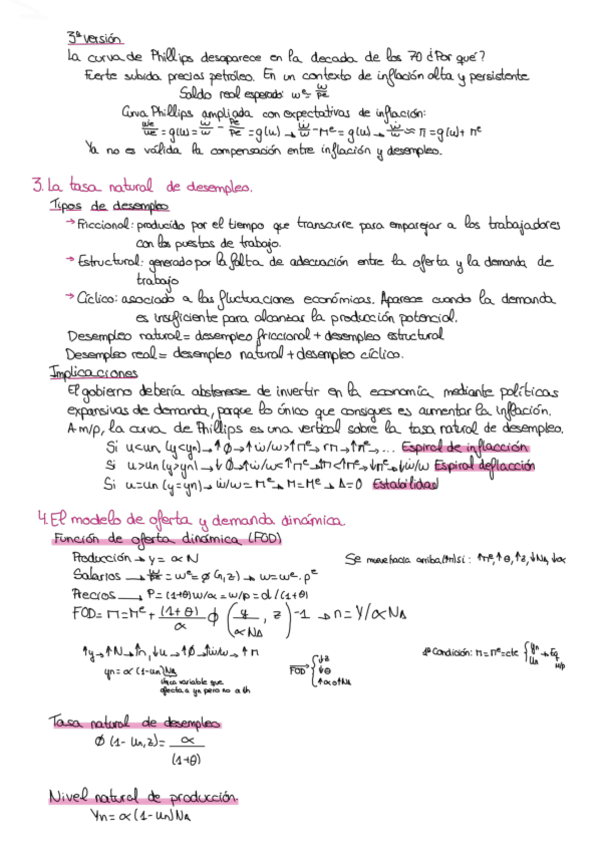 3ª versión
La curva de Phillips desaparece en la decada de los 70 ¿Por qué?
Fuerte subida precios petróleo. En un contexto de inflación alta y persistente
Saldo real esperado: wᵉ = W/Pᵉ
Curva Phillips ampliada con expectativas de inflación:
= g(u) = = g(u) → = g(u) → ≈ π = g(u) + πᵉ
Ya no es válida la compensación entre inflación y desempleo.
3. La tasa natural de desempleo.
Tipos de desempleo
→ Friccional: producido por el tiempo que transcurre para emparejar a los trabajadores
con los puestos de trabajo.
→ Estructural: generado por la falta de adecuación entre la oferta y la demanda de
trabajo
→ Cíclico: asociado a las fluctuaciones económicas. Aparece cuando la demanda
es insuficiente para alcanzar la producción potencial.
Desempleo natural = desempleo friccional + desempleo estructural
Desempleo real = desempleo natural + desempleo cíclico.
Implicaciones
El gobierno debería abstenerse de invertir en la economía mediante políticas
expansivas de demanda, porque lo único que consigues es aumentar la inflación.
A m/p, la curva de Phillips es una vertical sobre la tasa natural de desempleo.
Si u<un (y<yn) → ↑Ø → ↑ẇ/w > ↑πᵉ → ↑π → ↑πᵉ → ... Espiral de inflacción
Si u>un (y>yn) → ↓Ø → ↑ẇ/w < ↑πᵉ → → ↓πᵉ → ↓ẇ/w Espiral deflacción
Si u=un (y=yn) → ẇ/w = πᵉ → π = πᵉ → Δ=0 Estabilidad
4. El modelo de oferta y demanda dinámica
Función de oferta dinámica (FOD)
Producción → y = αN
Se mueve hacia arriba si: ↑πᵉ, ↑θ, ↑z, ↓NA, ↓α
Salarios → = wᵉ = Ø(n,z) → w = wᵉ · pᵉ
Precios → P = (1+θ)w/α = w/p = α/(1+θ)
FOD = π = πᵉ + (1+θ)/α Ø (y/αNA, z) - 1 → n = Y/αNA
↑y → ↑N → ↑n, ↓u → ↑Ø → ↑ẇ/w → ↑π
1ª Condición: π = πᵉ = cte { yn un → Eq m/p
yn = α(1-un)NA
única variable que
afecta a yn pero no a
FOD { ↓z ↓θ ↑α o ↑NA
Tasa natural de desempleo
Ø (1-un, z) = α/(1+θ)
Nivel natural de producción
Yn = α(1-un)NA